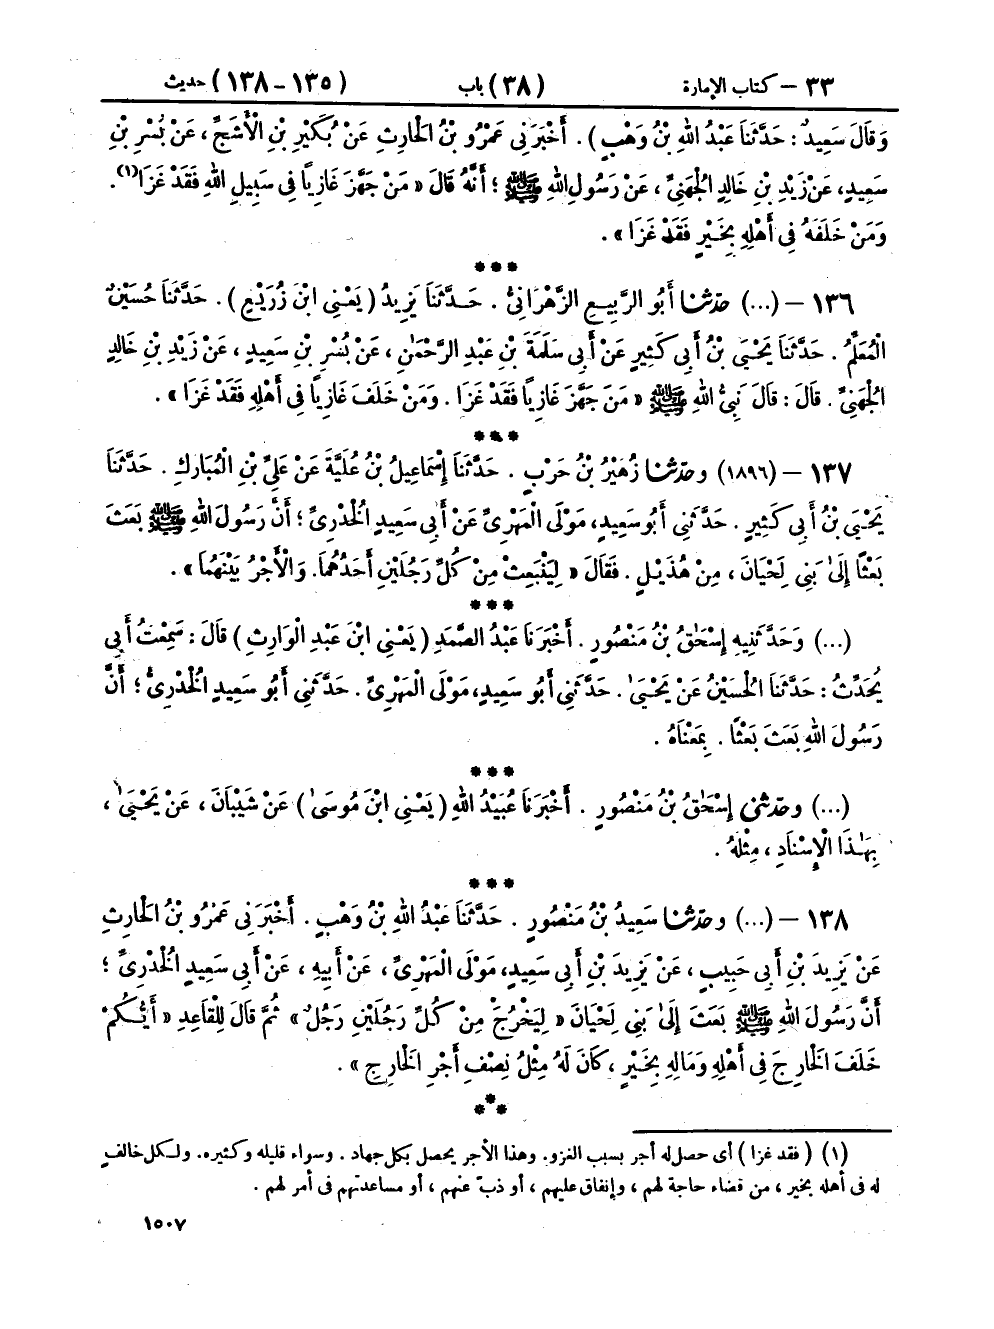 ٣٣ – كتاب الإمارة (٣٨) باب (١٣٥ – ١٣٨) حديث
وَقَالَ سَعِيدٌ : حَدَّثَنَا عَبْدُ اللهِ بْنُ وَهْبٍ) . أَخْبَرَنِي عَمْرُو بْنُ الْحَارِثِ عَنْ بُكَيْرِ بْنِ الْأَشَجِّ ، عَنْ بُسْرِ بْنِ
سَعِيدٍ، عَنْ زَيْدِ بْنِ خَالِدٍ الْجُهَنِيِّ ، عَنْ رَسُولِ اللهِ ﷺ ؛ أَنَّهُ قَالَ « مَنْ جَهَّزَ غَازِيًا فِي سَبِيلِ اللهِ فَقَدْ غَزَا(١) .
وَمَنْ خَلَفَهُ فِي أَهْلِهِ بِخَيْرٍ فَقَدْ غَزَا » .
***
١٣٦ – (...) حدّثنا أَبُو الرَّبِيعِ الزَّهْرَانِيُّ . حَدَّثَنَا يَزِيدُ ( يَعْنِي ابْنَ زُرَيْعٍ ) . حَدَّثَنَا حُسَيْنٌ
الْمُعَلِّمُ . حَدَّثَنَا يَحْيَىٰ بْنُ أَبِي كَثِيرٍ عَنْ أَبِي سَلَمَةَ بْنِ عَبْدِ الرَّحْمٰنِ ، عَنْ بُسْرِ بْنِ سَعِيدٍ ، عَنْ زَيْدِ بْنِ خَالِدٍ
الْجُهَنِيِّ . قَالَ : قَالَ نَبِيُّ اللهِ ﷺ « مَنْ جَهَّزَ غَازِيًا فَقَدْ غَزَا . وَمَنْ خَلَفَ غَازِيًا فِي أَهْلِهِ فَقَدْ غَزَا » .
***
١٣٧ – (١٨٩٦) وحدّثنا زُهَيْرُ بْنُ حَرْبٍ . حَدَّثَنَا إِسْمَاعِيلُ بْنُ عُلَيَّةَ عَنْ عَلِيِّ بْنِ الْمُبَارَكِ . حَدَّثَنَا
يَحْيَىٰ بْنُ أَبِي كَثِيرٍ . حَدَّثَنِي أَبُو سَعِيدٍ، مَوْلَى الْمَهْرِيِّ عَنْ أَبِي سَعِيدٍ الْخُدْرِيِّ ؛ أَنَّ رَسُولَ اللهِ ﷺ بَعَثَ
بَعْثًا إِلَىٰ بَنِي لَحْيَانَ ، مِنْ هُذَيْلٍ . فَقَالَ « لِيَنْبَعِثْ مِنْ كُلِّ رَجُلَيْنِ أَحَدُهُمَا. وَالْأَجْرُ بَيْنَهُمَا » .
***
(...) وَحَدَّثَنِيهِ إِسْحٰقُ بْنُ مَنْصُورٍ . أَخْبَرَنَا عَبْدُ الصَّمَدِ ( يَعْنِي ابْنَ عَبْدِ الْوَارِثِ ) قَالَ : سَمِعْتُ أَبِي
يُحَدِّثُ : حَدَّثَنَا الْحُسَيْنُ عَنْ يَحْيَىٰ . حَدَّثَنِي أَبُو سَعِيدٍ، مَوْلَى الْمَهْرِيِّ . حَدَّثَنِي أَبُو سَعِيدٍ الْخُدْرِيُّ ؛ أَنَّ
رَسُولَ اللهِ بَعَثَ بَعْثًا . بِمَعْنَاهُ .
***
(...) وحدّثني إِسْحٰقُ بْنُ مَنْصُورٍ . أَخْبَرَنَا عُبَيْدُ اللهِ ( يَعْنِي ابْنَ مُوسَىٰ ) عَنْ شَيْبَانَ ، عَنْ يَحْيَىٰ ،
بِهٰذَا الْإِسْنَادِ ، مِثْلَهُ .
***
١٣٨ – (...) وحدّثنا سَعِيدُ بْنُ مَنْصُورٍ . حَدَّثَنَا عَبْدُ اللهِ بْنُ وَهْبٍ . أَخْبَرَنِي عَمْرُو بْنُ الْحَارِثِ
عَنْ يَزِيدَ بْنِ أَبِي حَبِيبٍ ، عَنْ يَزِيدَ بْنِ أَبِي سَعِيدٍ، مَوْلَى الْمَهْرِيِّ ، عَنْ أَبِيهِ ، عَنْ أَبِي سَعِيدٍ الْخُدْرِيِّ ؛
أَنَّ رَسُولَ اللهِ ﷺ بَعَثَ إِلَىٰ بَنِي لَحْيَانَ « لِيَخْرُجْ مِنْ كُلِّ رَجُلَيْنِ رَجُلٌ » ثُمَّ قَالَ لِلْقَاعِدِ « أَيُّكُمْ
خَلَفَ الْخَارِجَ فِي أَهْلِهِ وَمَالِهِ بِخَيْرٍ ، كَانَ لَهُ مِثْلُ نِصْفِ أَجْرِ الْخَارِجِ » .
***
(١) ( فقد غزا ) أى حصل له أجر بسبب الغزو. وهذا الأجر يحصل بكل جهاد . وسواء قليله وكثيره. ولكل خالف
له فى أهله بخير ، من قضاء حاجة لهم ، وإنفاق عليهم ، أو ذبّ عنهم ، أو مساعدتهم فى أمر لهم .
١٥٠٧